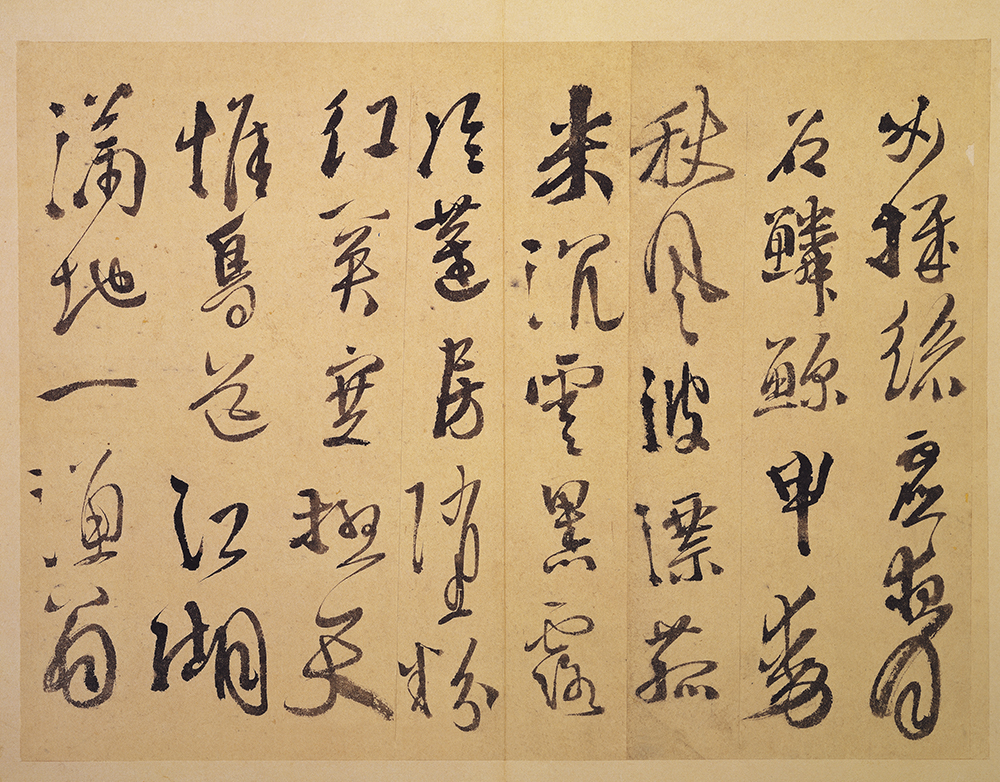 女機絲虛夜月
石鱗鯨甲動
秋風波漂菰
米沉雲黑露
冷蓮房墜粉
紅關塞極天
惟鳥道江湖
滿地一漁翁